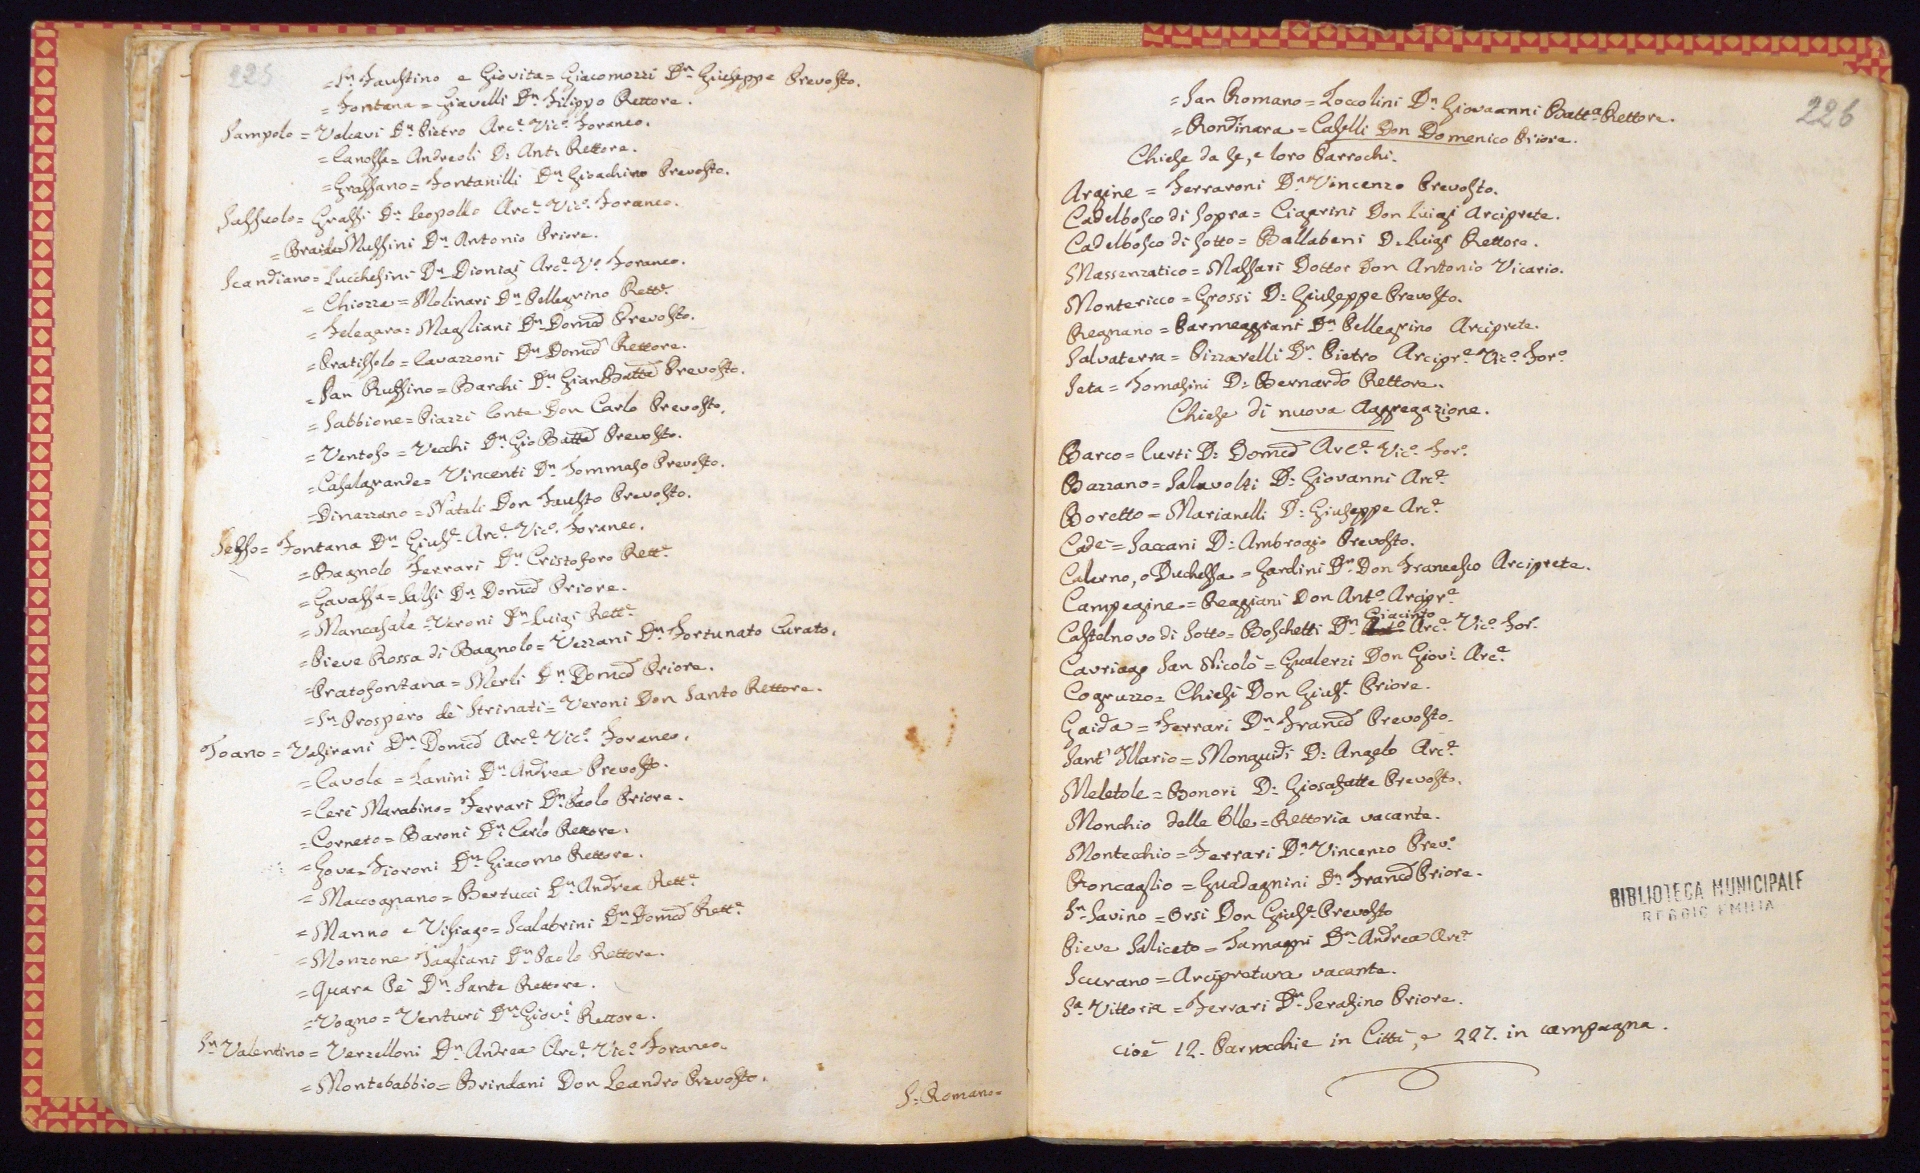 225
= Sn. Faustino e Giovita = Giacomozzi Dn. Giuseppe Prevosto.
= Fontana = Giavelli Dn. Filippo Rettore.
Sampolo = Valcavi Dn. Pietro Arc.e Vic.o Foraneo.
= Canossa = Andreoli D: Ant. Rettore.
= Grassano = Fontanilli Dn. Gioachino Prevosto.
Sassuolo = Grassi Dn. Leopoldo Arc.e Vic.o Foraneo.
= Braida Messini Dn. Antonio Priore.
Scandiano = Lucchesini Dn. Dionigi Arc.e V.o Foraneo.
= Chiozza = Molinari Dn. Pellegrino Rett.e
= Felegara = Magliani Dn. Dom.co Prevosto.
= Pratissolo = Cavazzoni Dn. Dom.co Rettore.
= San Ruffino = Barchi Dn. Gian Batta Prevosto.
= Sabbione = Piazzi Conte Don Carlo Prevosto.
= Ventoso = Vecchi Dn. Gio Batta Prevosto.
= Casalgrande = Vincenti Dn. Tommaso Prevosto.
= Dinazzano = Natali Don Fausto Prevosto.
Sesso = Fontana Dn. Gius.e Arc.e Vic.o Foraneo.
= Bagnolo Ferrari Dn. Cristoforo Rett.e
= Gavassa = Salsi Dn. Dom.co Priore.
= Mancasale = Veroni Dn. Luigi Rett.e
= Pieve Rossa di Bagnolo = Vezzani Dn. Fortunato Curato.
= Pratofontana = Merli Dn. Dom.co Priore.
= Sn. Prospero de' Strinati = Veroni Don Santo Rettore.
Toano = Valsirani Dn. Dom.co Arc.e Vic.o Foraneo.
= Cavola = Lanini Dn. Andrea Prevosto.
= Ceré Marabino = Ferrari Dn. Paolo Priore.
= Corneto = Baroni Dn. Carlo Rettore.
= Gova = Fioroni Dn. Giacomo Rettore.
= Maccognano = Bertucci Dn. Andrea Rett.e
= Manno e Visiago = Scalabrini Dn. Dom.co Rett.e
= Monzone Tagliani Dn. Paolo Rettore.
= Quara Bé Dn. Sante Rettore.
= Vogno = Venturi Dn. Giov.i Rettore.
Sn. Valentino = Verzelloni Dn. Andrea Arc.e Vic.o Foraneo.
= Montebabbio = Brindani Don Leandro Prevosto.
S: Romano =
226
= San Romano = Loccolini Dn. Giovaanni Batt.a Rettore.
= Rondinara = Caselli Don Domenico Priore.
Chiese da se, e loro Parrochi.
Argine = Ferraroni Dn. Vincenzo Prevosto.
Cadelbosco di Sopra = Cigarini Don Luigi Arciprete.
Cadelbosco di Sotto = Ballabeni D. Luigi Rettore.
Massenzatico = Massari Dottor Don Antonio Vicario.
Montericco = Grossi D: Giuseppe Prevosto.
Regnano = Parmeggiani Dn. Pellegrino Arciprete.
Salvaterra = Pizzarelli Dn. Pietro Arcipr.e Vic.o For.o
Seta = Tomasini D: Bernardo Rettore.
Chiese di nuova Aggregazione.
Barco = Curti D: Dom.co Arc.e Vic.o For.o
Bazzano = Salavolti D: Giovanni Arc.e
Boretto = Marianelli D: Giuseppe Arc.e
Cadé = Saccani D: Ambrogio Prevosto.
Calerno, o Duchessa = Gardini Dn. Don Francesco Arciprete.
Campegine = Reggiani Don Ant.o Arcipr.e
Castelnovo di Sotto = Boschetti Dn. Giacinto Arc.e Vic.o For.
Cavriago San Nicolò = Gualerzi Don Giov.i Arc.e
Cogruzzo = Chiesi Don Gius.e Priore.
Gaida = Ferrari Dn. Franc.co Prevosto.
Sant' Illario = Monguidi D: Angelo Arc.e
Meletole = Bonori D: Giosafatte Prevosto.
Monchio delle Olle = Rettoria vacante.
Montecchio = Ferrari Dn. Vincenzo Prev.o
Roncaglio = Guadagnini Dn. Franc.co Priore.
Sn. Savino = Orsi Don Gius.e Prevosto
Pieve Saliceto = Tamagni Dn. Andrea Arc.e
Scurano = Arcipretura vacante.
S.a Vittoria = Ferrari Dn. Serafino Priore.
cioè 12. Parrocchie in Città, e 227. in campagna.
BIBLIOTECA MUNICIPALE
REGGIO EMILIA